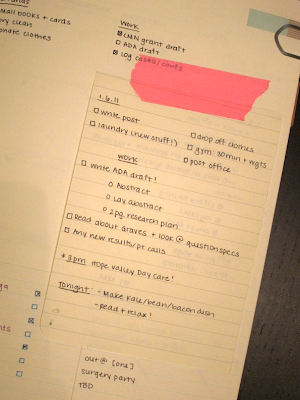 mail books + cards
clean
clothes
Work
CMN grant draft
ADA draft
Log cases/consts
1.6.11
write post
laundry (new stuff!)
drop off clothes
gym: 30min + wgts
post office
work
write ADA draft!
Abstract
Lay abstract
2pg. research plan
Read about Graves + look @ question specs
Any new results/pt calls
* 3pm Hope Valley Day Care!
Tonight: - Make Kale/bean/bacon dish
- Read + relax!
out @ [one]
surgery party
TBD